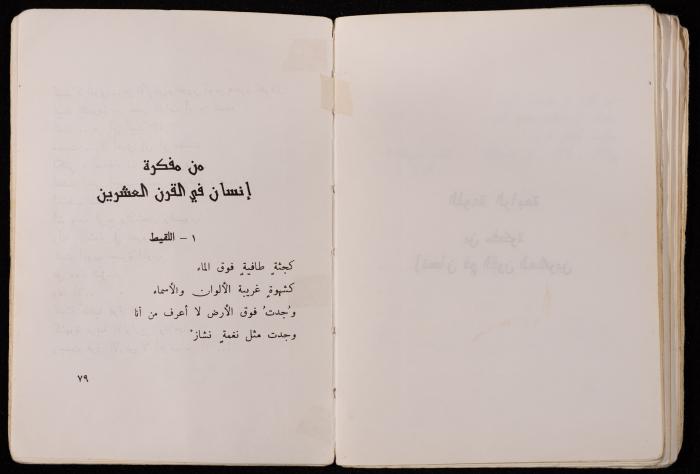 من مفكرة
إنسان في القرن العشرين
١ - اللقيط
كجثةٍ طافيةٍ فوق الماء
كشهوةٍ غريبة الألوان والأسماء
وُجدتُ فوق الأرض لا أعرف من أنا
وجدت مثل نغمةٍ نشازْ
٧٩